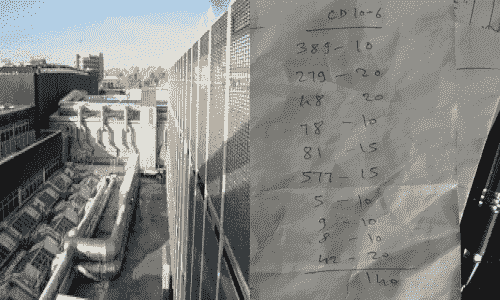 CD 20-6
389 - 10
279 - 20
48 20
78 - 10
81 - 15
577 - 15
5 - 10
9 - 10
8 - 10
42 - 20
140